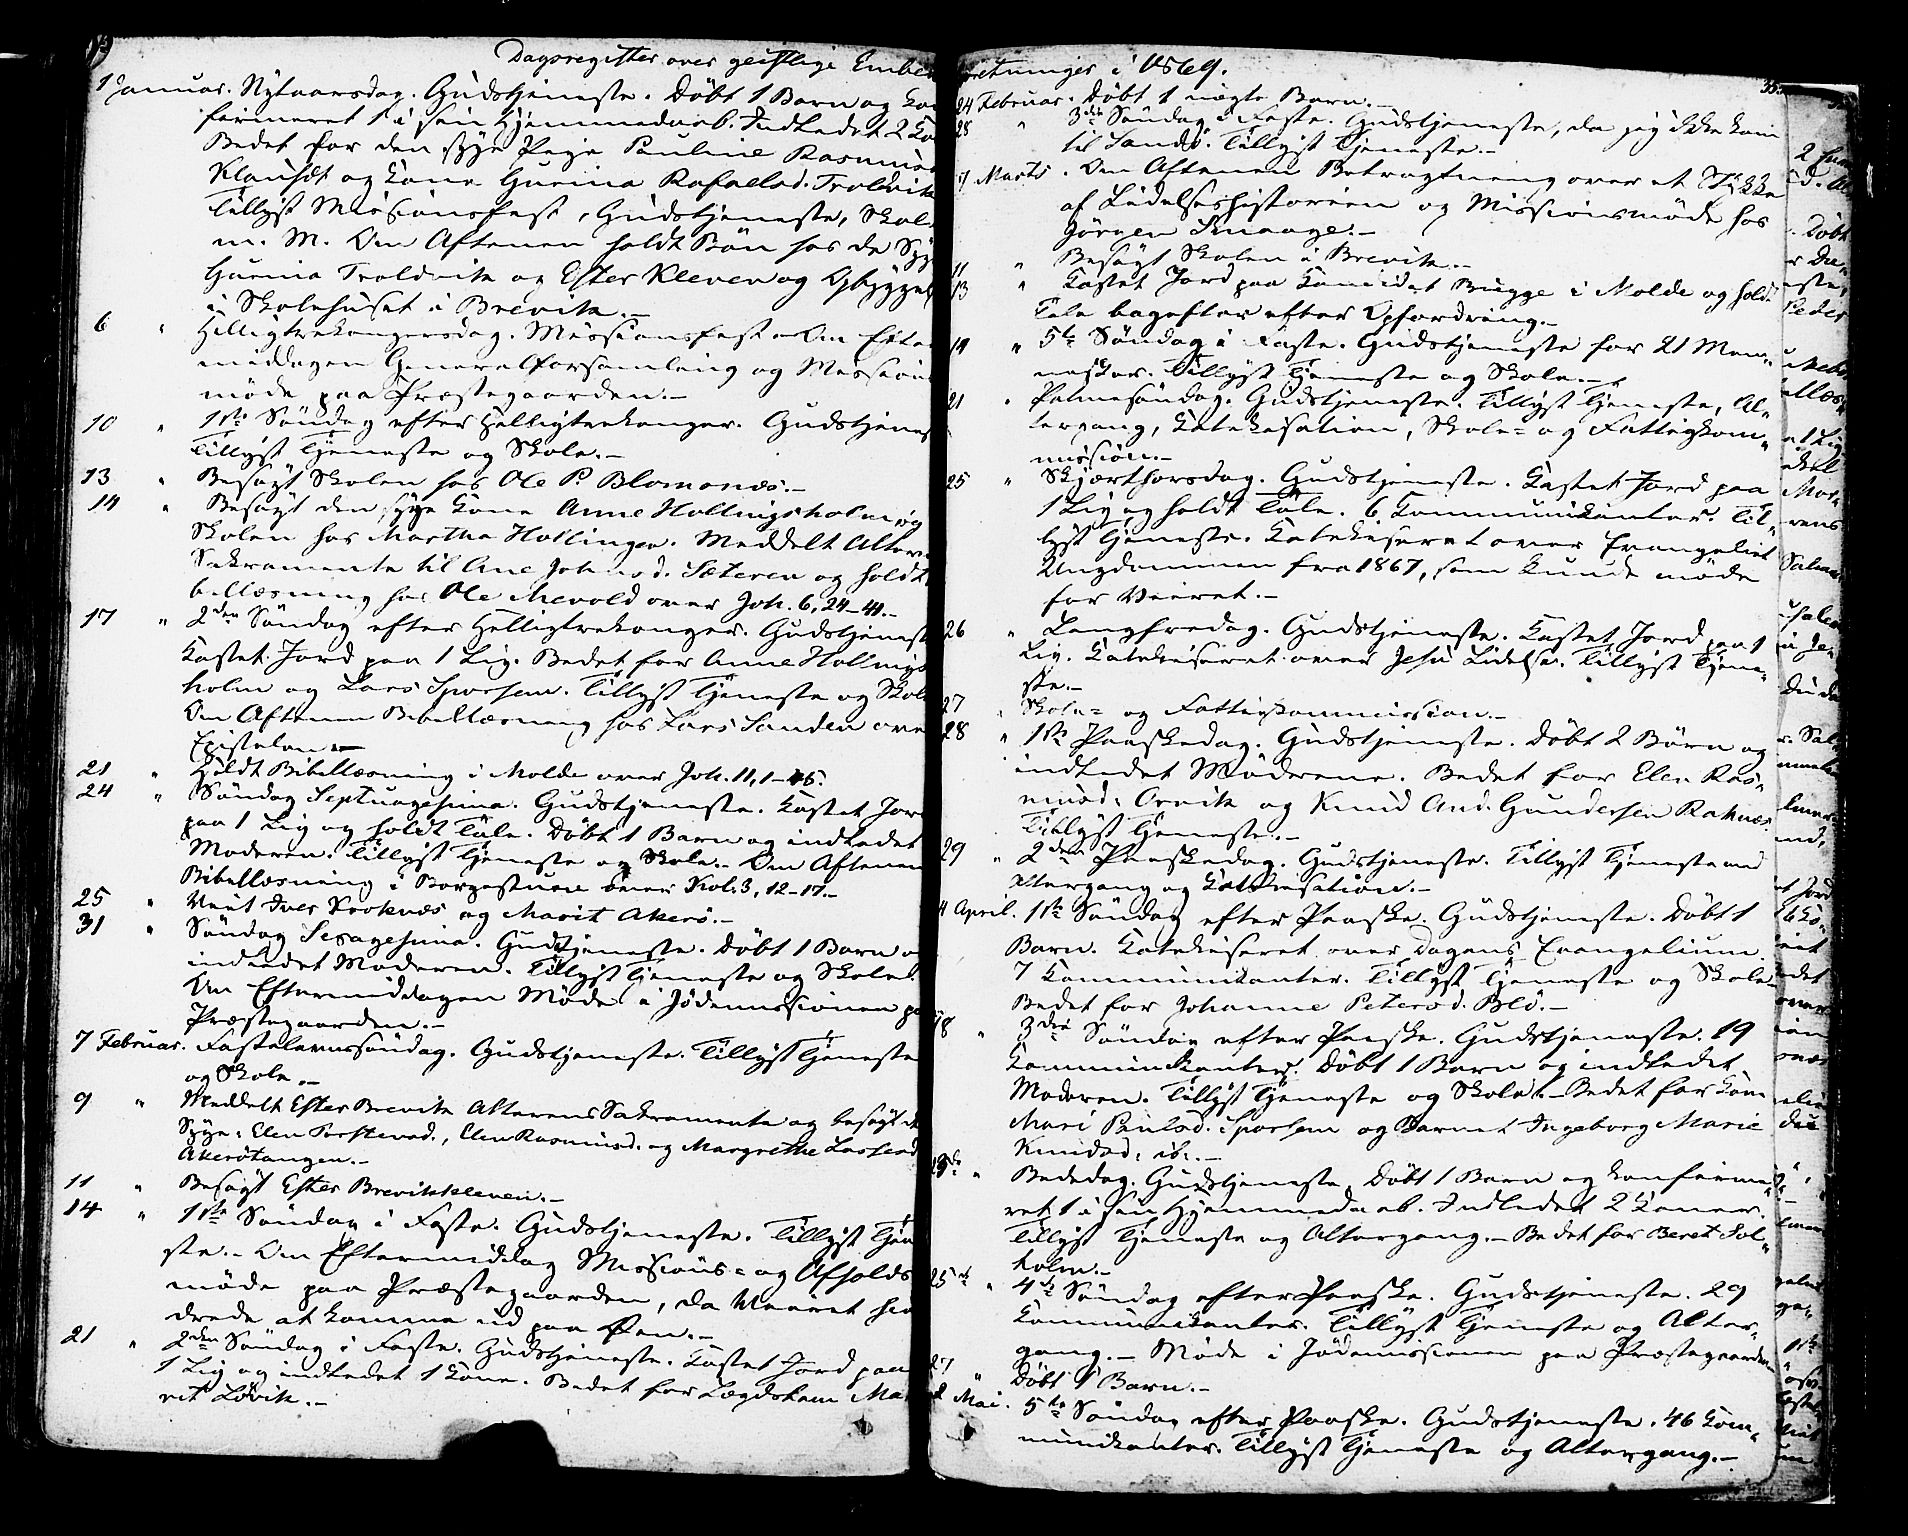 Dagsregister over geistlige Embe
1 Januar. Nytaarsdag. Gudstjeneste. Døbt 1 Barn og Kon
firmeret 1 i sin Hjemmedaab. Indledet 2 Ko
Bedet for den syge Pige Pauline Rasmusd
Klauset og Kone Gurina Rafaelsd. Troldvik
Tillyst Missionsfest, Gudstjeneste, Skole
m. M. Om Aftenen holdt Bøn hos de Syge
Gurina Troldvik og Ester Kleven og Opbyggel
i Skolehuset i Brevik.–
6 " Helligtrekongersdag. Missionsfest – Om Efter
middagen Generalforsamling og Missions
møde paa Præstegaarden.–
10 " 1ste Søndag efter Helligtrekonger. Gudstjenes
Tillyst Tjeneste og Skole.–
13 " Besøgt Skolen hos Ole P. Blomsnæs.–
14 " Besøgt den syge Kone Anne Hollingsholm og
Skolen hos Martha Hollingen. Meddelt Alterens
Sakramente til Ane Johnsd. Sæteren og holdt
bellæsning hos Ole Mevold over Joh. 6, 24–41.–
17 " 2den Søndag efter Helligtrekonger. Gudstjenest
Kastet Jord paa 1 Lig. Bedet for Anne Hollings
holm og Lars Sporsem. Tillyst Tjeneste og Skol
Om Aftenen Bibellæsning hos Lars Sanden over
Epistelen.–
21 " Holdt Bibellæsning i Molde over Joh. 11, 1–45.
24 " Søndag Septuagesima. Gudstjeneste. Kastet Jor
paa 1 Lig og holdt Tale. Døbt 1 Barn og indledet
Moderen. Tillyst Tjeneste og Skole.– Om Aftenen
Bibellæsning i Borgestuen over Kol. 3, 12–17.–
25 " Viet Iver Kroknæs og Marit Akerø.–
31 " Søndag Sexagesima. Gudstjeneste. Døbt 1 Barn o
indledet Moderen. Tillyst Tjeneste og Skole.
Om Eftermiddagen Møde i Jødemissionen pa
Præstegaarden.–
7 Februar. Fastelavnssøndag. Gudstjeneste. Tillyst Tjeneste
og Skole.–
9 " Meddelt Ester Brevik Alterens Sakramente og besøgt de
Syge: Elen Torstensd., Elen Rasmusd. og Margrethe Larsend
Akerøtangen.–
11 " Besøgt Ester Brevikkleven.–
14 " 1ste Søndag i Faste. Gudstjeneste. Tillyst Tjene
ste.– Om Eftermiddag Missions- og Afholds
møde paa Præstegaarden, da Veiret hin
drede at komme ud paa Øen.–
21 " 2den Søndag i Faste. Gudstjeneste. Kastet Jord paa
1 Lig og indledet 1 Kone. Bedet for Lægdslem Mar
rit Løvik.–
retninger i 1869.
24 Februar. Døbt 1 uægte Barn.–
28 " 3die Søndag i Faste. Gudstjeneste, da jeg ikke kom
til Sandø. Tillyst Tjeneste.–
7 Marts. Om Aftenen Betragtning over et Stykke
af Lidelseshistorien og Missionsmøde hos
Jørgen Knaage.–
11 " Besøgt Skolen i Brevik.–
13 " Kastet Jord paa Kandidat Brugge i Molde og holdt
Tale bagefter efter Opfordring.–
14 " 5te Søndag i Faste. Gudstjeneste for 21 Men-
nesker. Tillyst Tjeneste og Skole.–
21 " Palmesøndag. Gudstjeneste. Tillyst Tjeneste, Al-
tergang, Katekisation, Skole- og Fattigkom-
mission.–
25 " Skjærthorsdag. Gudstjeneste. Kastet Jord paa
1 Lig og holdt Tale. 6 Kommunikanter. Til-
lyst Tjeneste. Katekiseret over Evangeliet
Ungdommen fra 1867, som kunde møde
for Veiret.–
26 " Langfredag. Gudstjeneste. Kastet Jord paa 1
Lig. Katekiseret over Jesu Lidelse. Tillyst Tjene-
ste.–
27 " Skole- og Fattigkommission.–
28 " 1ste Paaskedag. Gudstjeneste. Døbt 2 Børn og
indledet Mødrene. Bedet for Elen Ras-
musd. Orvik og Knud And. Gundersen Raknæs.
Tillyst Tjeneste.–
29 " 2den Paaskedag. Gudstjeneste. Tillyst Tjeneste med
Altergang og Katekisation.–
4 April. 1ste Søndag efter Paaske. Gudstjeneste. Døbt 1
Barn. Katekiseret over Dagens Evangelium.
7 Kommunikanter. Tillyst Tjeneste og Skole
Bedet for Johanne Petersd. Blø.–
18 " 3die Søndag efter Paaske. Gudstjeneste. 19
Kommunikanter. Døbt 1 Barn og indledet
Moderen. Tillyst Tjeneste og Skole.– Bedet for Kone
Mari Paulsd. Sporsem og Barnet Ingeborg Marie
Knudsd. ib.–
Bededag. Gudstjeneste. Døbt 1 Barn og konfirme-
ret 1 i sin Hjemmedaab. Indledet 2 Koner.
Tillyst Tjeneste og Altergang.– Bedet for Beret Sol-
holm.–
25 " 4de Søndag efter Paaske. Gudstjeneste. 29
Kommunikanter. Tillyst Tjeneste og Alter-
gang.– Møde i Jødemissionen paa Præstegaarden
27 " Døbt 1 Barn.–
2 Mai. 5te Søndag efter Paaske. Gudstjeneste. 46 Kom-
munikanter. Tillyst Tjeneste og Altergang.–